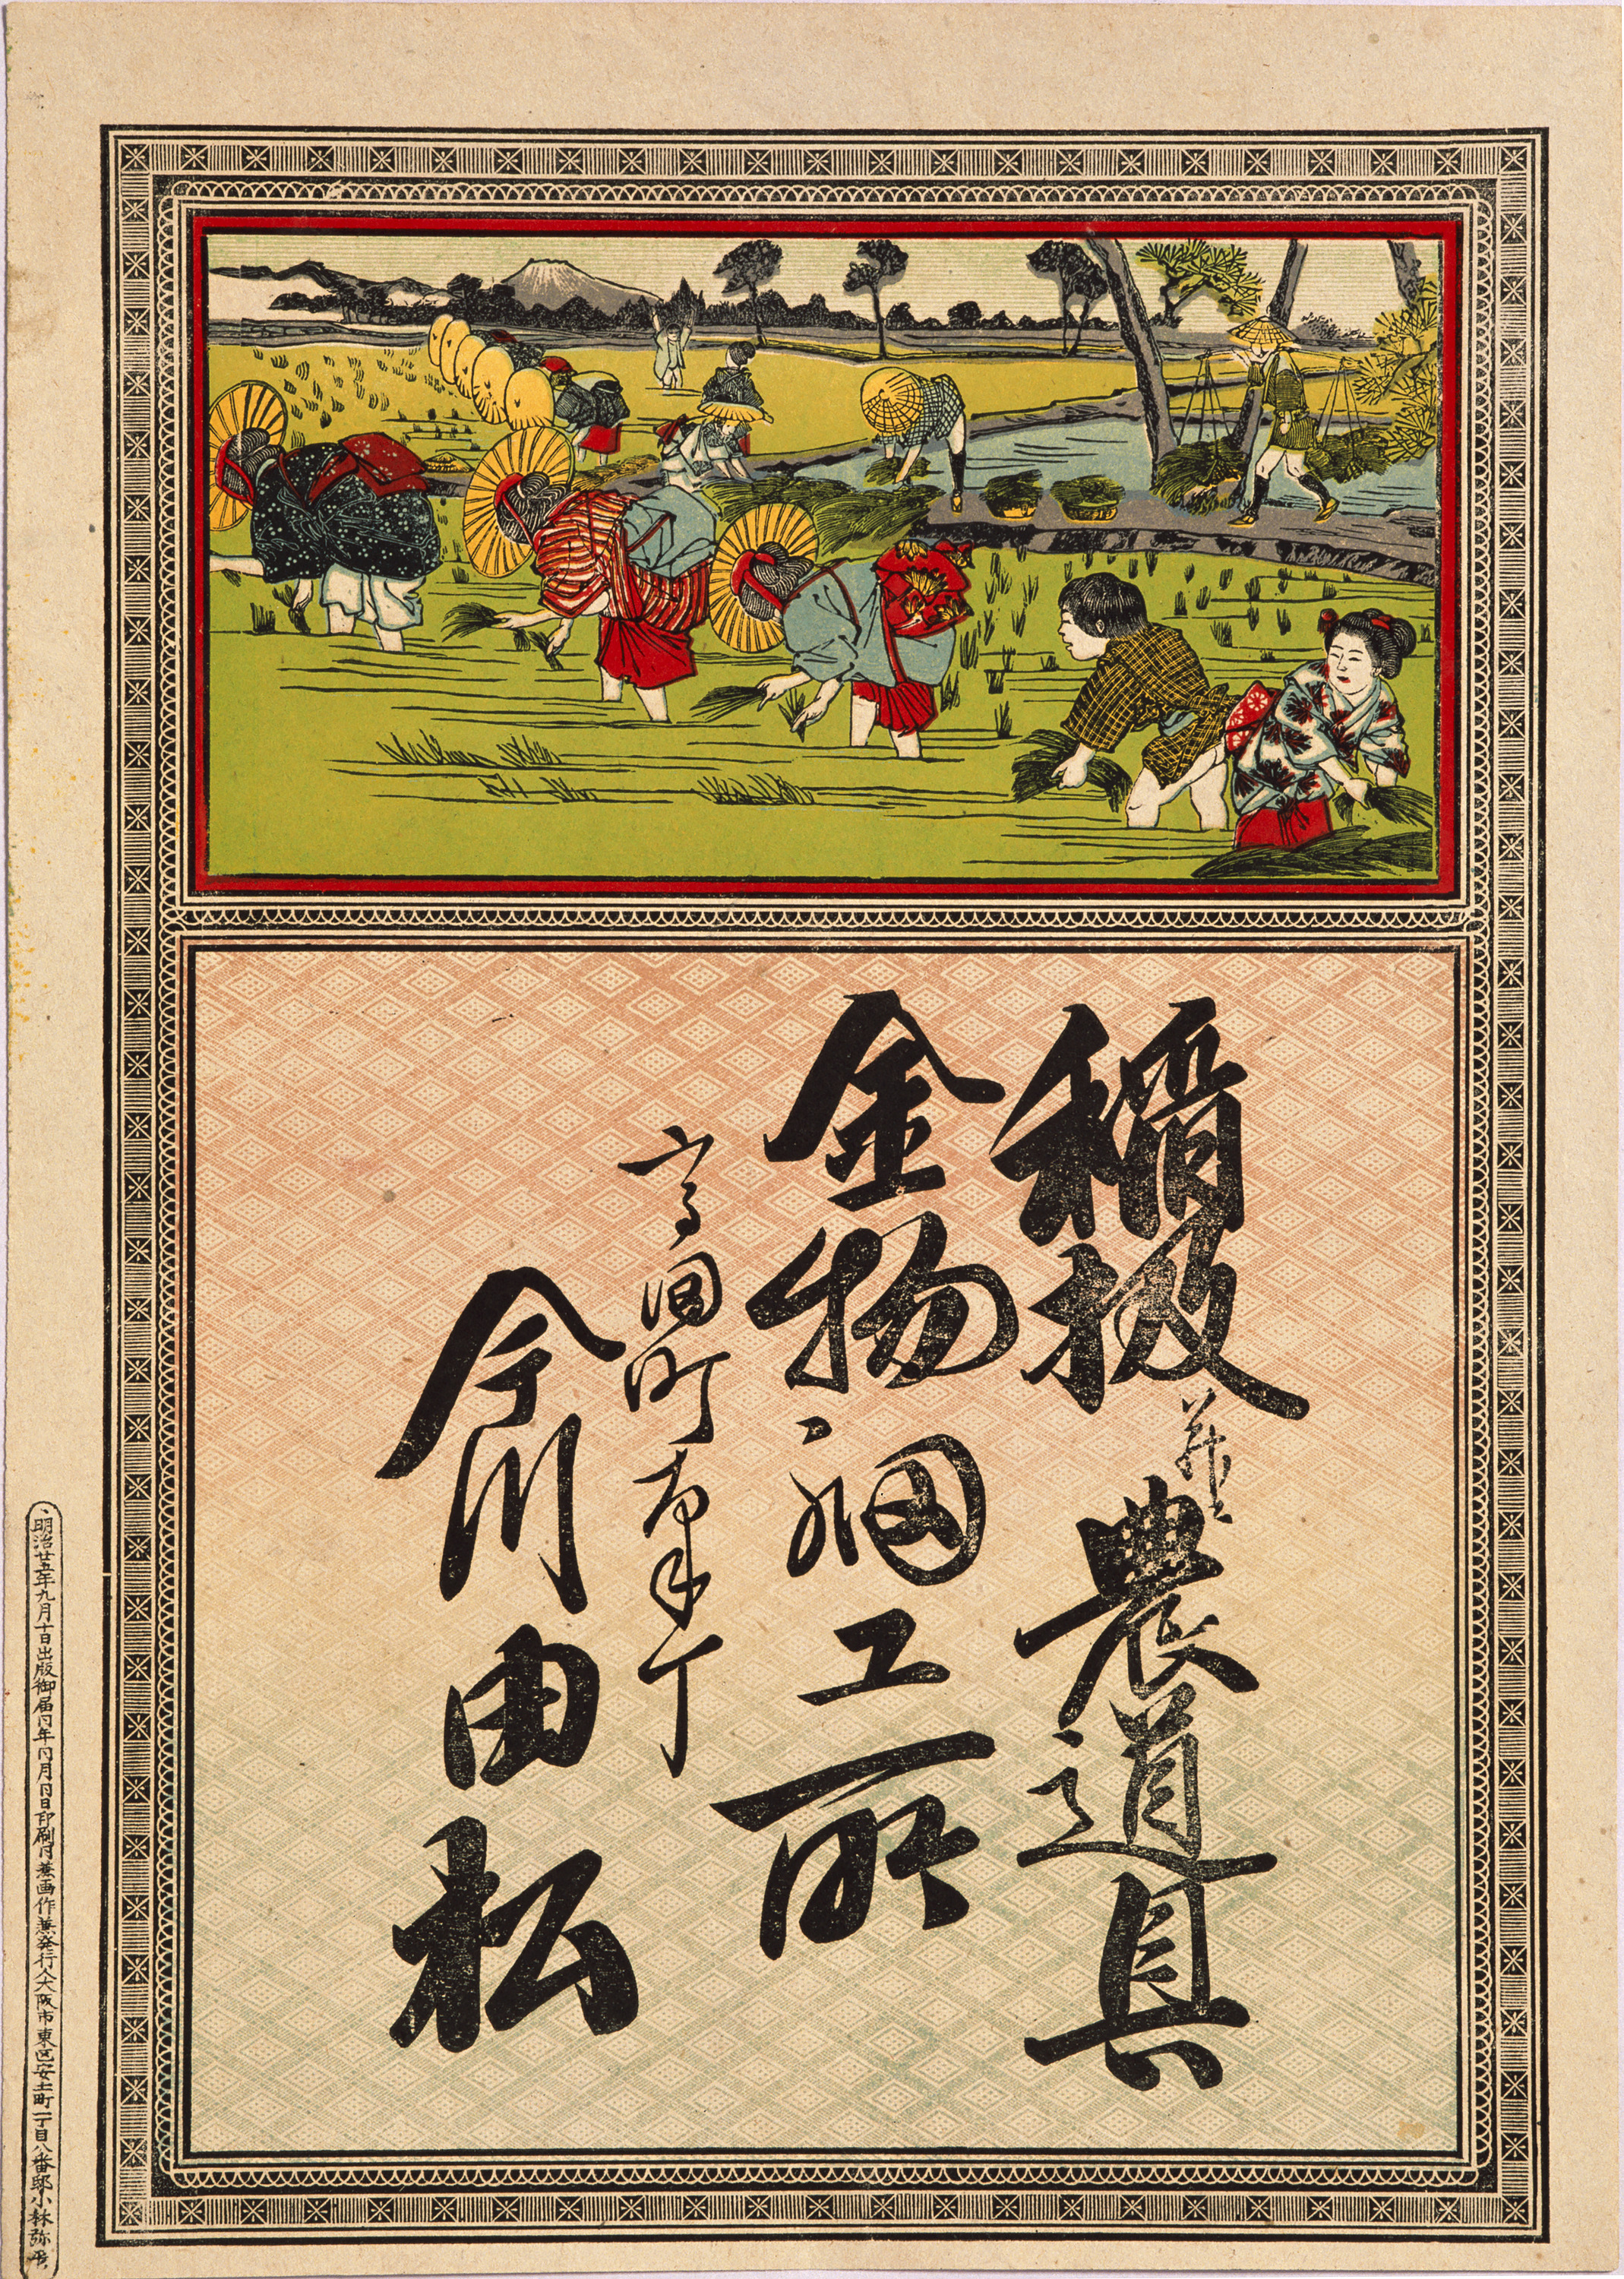 稲扱并ニ農道具
金物細工所
高岡町本丁
今川由松
明治廿五年九月十日出版御届仝年仝月仝日印刷仝兼画作兼発行人大阪市東区安土町一丁目八番邸小林弥平